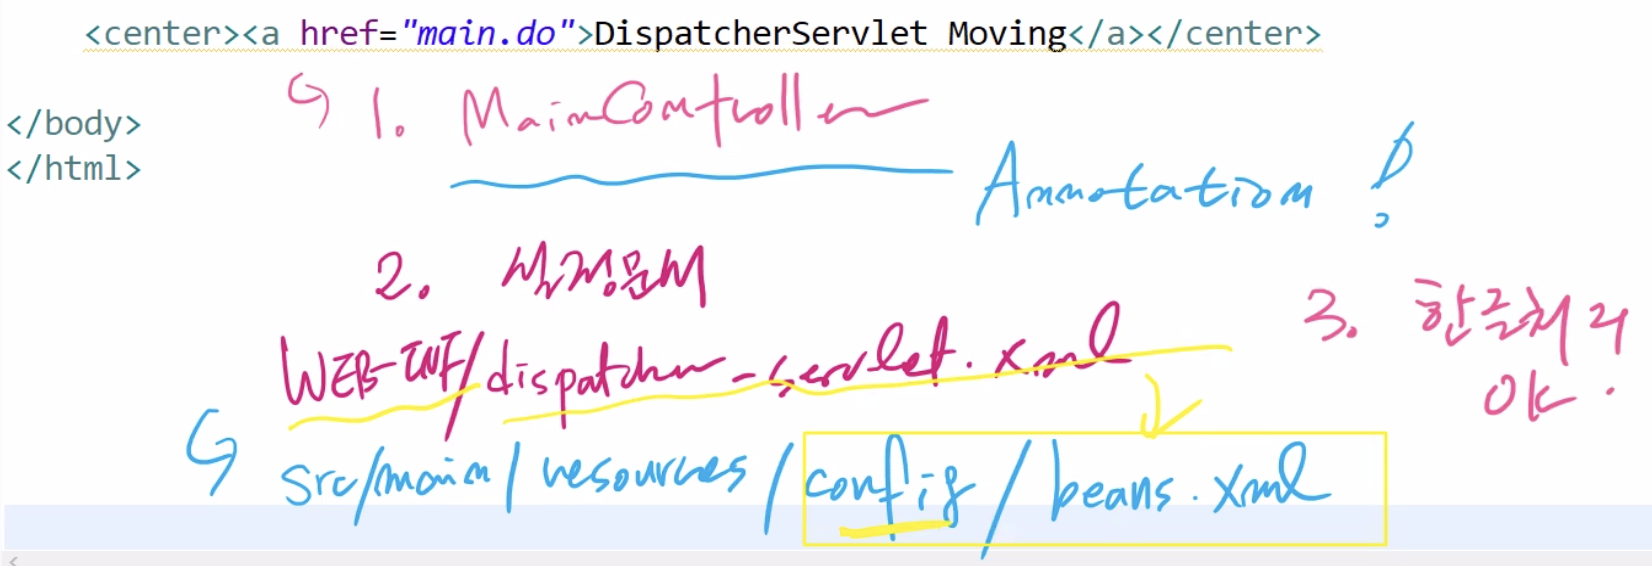 <center><a href="main.do">DispatcherServlet Moving</a></center>
</body>
</html>
1. MainController
Annotation !
2. 설정문서
WEB-INF/dispatcher-servlet.xml
3. 한글처리
OK.
src/main/resources/config/beans.xml